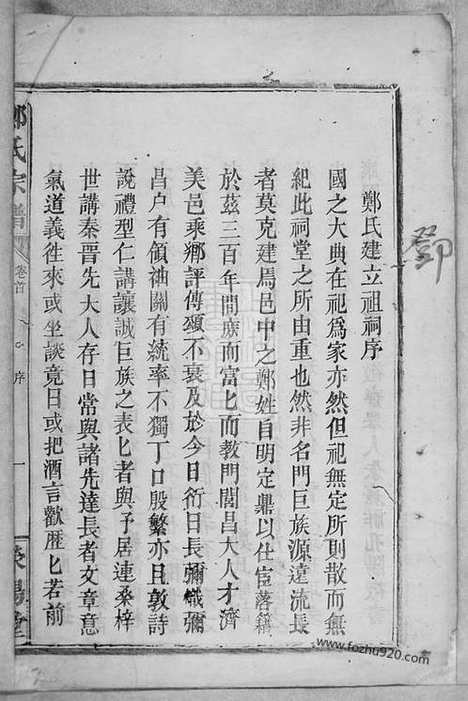 鄧
鄭氏建立祖祠序
國之大典在祀爲家亦然但祀無定所則散而無
紀此祠堂之所由重也然非名門巨族源遠流長
者莫克建焉邑中之鄭姓自明定鼎以仕宦落籍
於茲三百年間庶而富匕而教門閭昌大人才濟
美邑乘鄉評傳頌不衰及於今日衍日長彌熾彌
昌户有領袖關有統率不獨丁口殷繁亦且敦詩
說禮型仁講讓誠巨族之表匕者與予居連桑梓
世講秦晋先大人存日常與諸先達長者文章意
氣道義徃來或坐談竟日或把酒言歡歴匕若前
鄭氏宗譜
卷首
序
一
榮陽堂
www.fozhu920.com